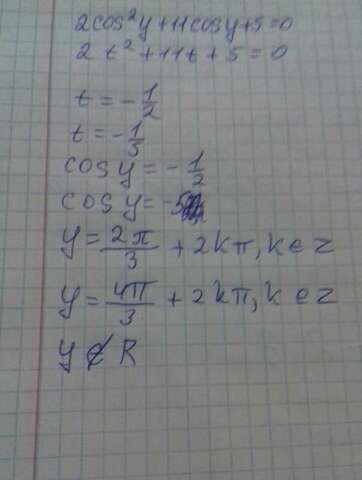 2cos²y+11cosy+5=0
2t²+11t+5=0
t=-1/2
t=-1/5
cosy=-1/2
cosy=-5
y=2π/3+2kπ, k∈z
y=4π/3+2kπ, k∈z
y∉R